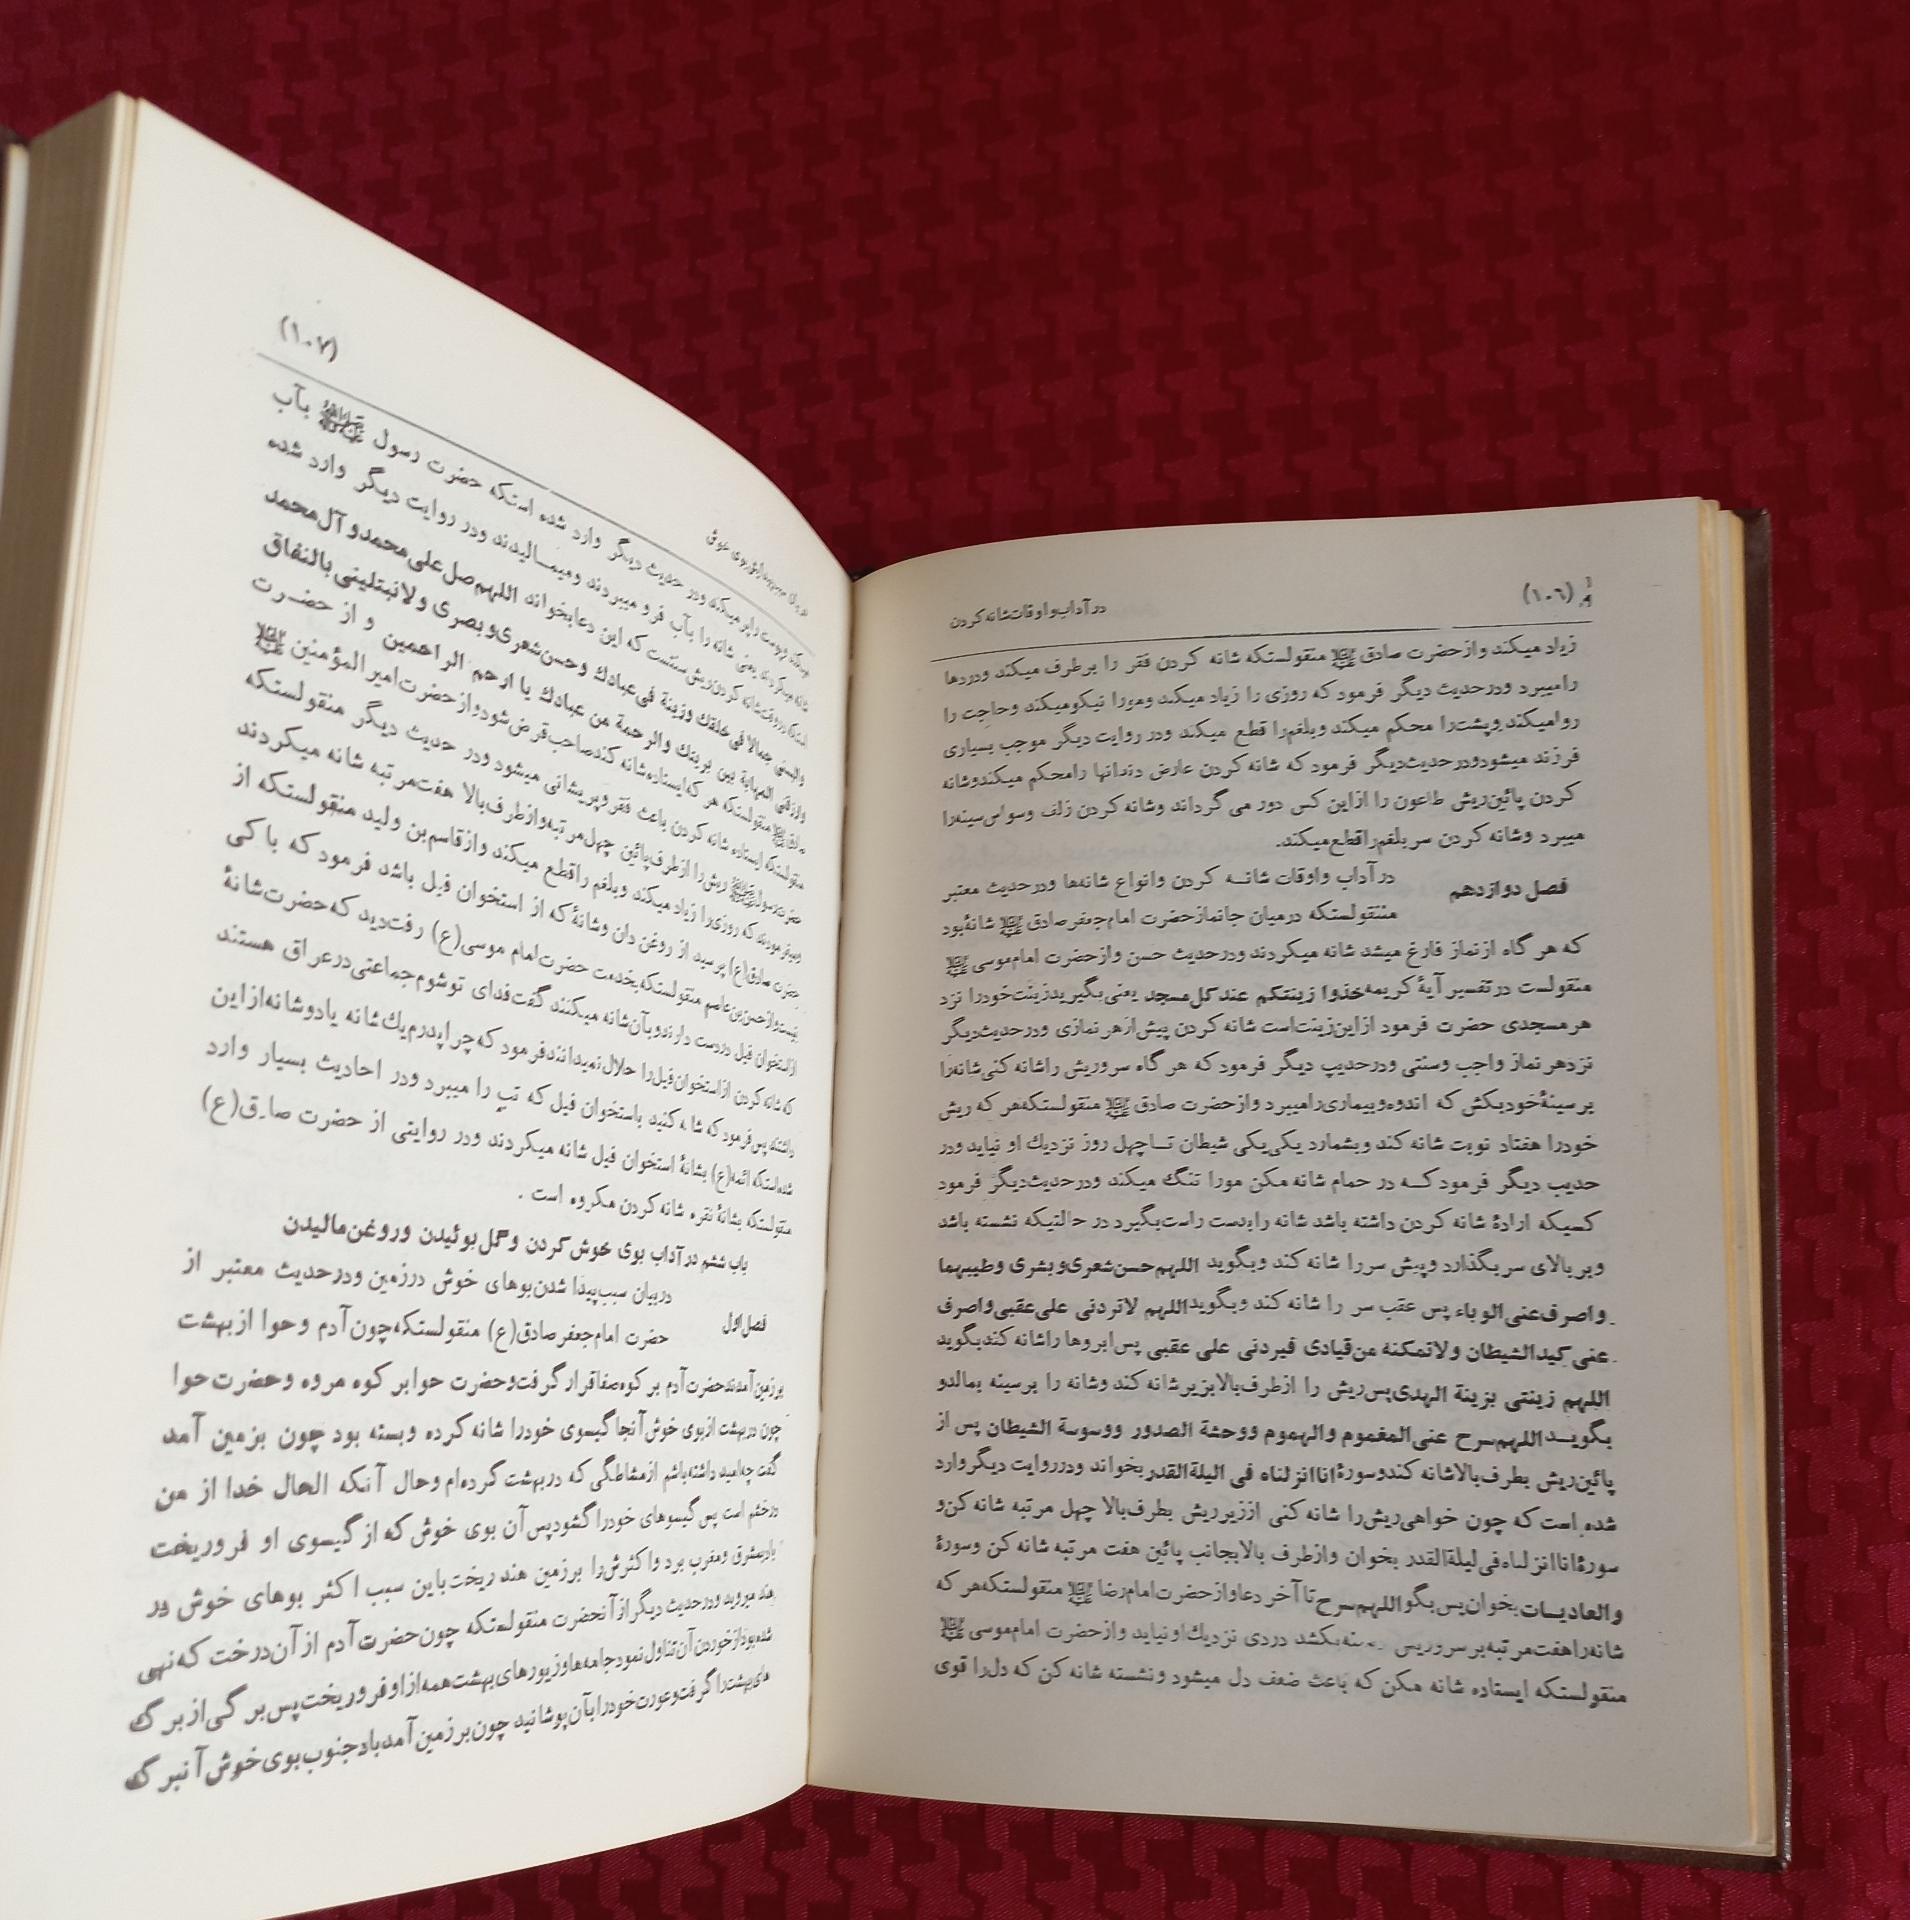 (۱۰۶)
در آداب و اوقات شانه کردن
زیاد میکند و از حضرت صادق منقولستکه شانه کردن فقر را برطرف میکند و دردها
را میبرد و در حدیث دیگر فرمود که روزی را زیاد میکند و مو را نیکو میکند و حاجت را
روا میکند و پشت را محکم میکند و بلغم را قطع میکند و در روایت دیگر موجب بسیاری
فرزند میشود و در حدیث دیگر فرمود که شانه کردن عارض دندانها را محکم میکند و شانه
کردن پائین ریش طاعون را از این کس دور می گرداند و شانه کردن زلف وسواس سینه را
میبرد و شانه کردن سر بلغم را قطع میکند.
فصل دوازدهم
در آداب و اوقات شانه کردن و انواع شانه‌ها و در حدیث معتبر
منقولستکه در میان جانماز حضرت امام جعفر صادق شانهٔ بود
که هر گاه از نماز فارغ میشد شانه میکردند و در حدیث حسن و از حضرت امام موسی
منقولست در تفسیر آیهٔ کریمه خذوا زینتکم عند کل مسجد یعنی بگیرید زینت خود را نزد
هر مسجدی حضرت فرمود از این زینت است شانه کردن پیش از هر نمازی و در حدیث دیگر
نزد هر نماز واجب و سنتی و در حدیث دیگر فرمود که هر گاه سر و ریش را شانه کنی شانه را
بر سینهٔ خود بکش که اندوه و بیماری را میبرد و از حضرت صادق منقولستکه هر که ریش
خود را هفتاد نوبت شانه کند و بشمارد یکی یکی شیطان تا چهل روز نزدیك او نیاید و در
حدیث دیگر فرمود که در حمام شانه مکن مو را تنگ میکند و در حدیث دیگر فرمود
کسیکه ارادهٔ شانه کردن داشته باشد شانه را بدست راست بگیرد در حالتیکه نشسته باشد
و بر بالای سر بگذارد و پیش سر را شانه کند و بگوید اللهم حسن شعری و بشری و طیبهما
و اصرف عنی الوباء پس عقب سر را شانه کند و بگوید اللهم لا تردنی علی عقبی و اصرف
عنی کید الشیطان و لا تمکنه من قیادی فیردنی علی عقبی پس ابروها را شانه کند بگوید
اللهم زینتی بزینة الهدی پس ریش را از طرف بالا بزیر شانه کند و شانه را بر سینه بمالد و
بگوید اللهم سرح عنی الغموم والهموم ووحشة الصدور ووسوسة الشیطان پس از
پائین ریش بطرف بالا شانه کند و سورهٔ انا انزلناه فی الیلة القدر بخواند و در روایت دیگر وارد
شده است که چون خواهی ریش را شانه کنی از زیر ریش بطرف بالا چهل مرتبه شانه کن و
سورهٔ انا انزلناه فی لیلة القدر بخوان و از طرف بالا بجانب پائین هفت مرتبه شانه کن و سورهٔ
والعادیات بخوان پس بگو اللهم سرح تا آخر دعا و از حضرت امام رضا منقولستکه هر که
شانه را هفت مرتبه بر سر و ریش و سینه بکشد دردی نزدیك او نیاید و از حضرت امام موسی
منقولستکه ایستاده شانه مکن که باعث ضعف دل میشود و نشسته شانه کن که دل را قوی
(۱۰۷)
میکند و پوست را پر میکند و در حدیث دیگر وارد شده استکه حضرت رسول بآب
شانه میکردند یعنی شانه را بآب فرو میبردند و میمالیدند و در روایت دیگر وارد شده
استکه در وقت شانه کردن ریش سنتست که این دعا بخواند اللهم صل علی محمد و آل محمد
والبسنی جمالا فی خلقك وزینة فی عبادك وحسن شعری وبصری ولا تبتلینی بالنفاق
وارزقنی المهابة بین بریتك والرحمة من عبادك یا ارحم الراحمین و از حضرت
صادق منقولستکه هر که ایستاده شانه کند صاحب قرض شود و از حضرت امیر المؤمنین
منقولستکه ایستاده شانه کردن باعث فقر و پریشانی میشود و در حدیث دیگر منقولستکه
حضرت رسول ریش را از طرف پائین چهل مرتبه و از طرف بالا هفت مرتبه شانه میکردند
و میفرمودند که روزی را زیاد میکند و بلغم را قطع میکند و از قاسم بن ولید منقولستکه از
حضرت صادق (ع) پرسید از روغن دان و شانهٔ که از استخوان فیل باشد فرمود که باکی
نیست و از حسن بن عاصم منقولستکه بخدمت حضرت امام موسی (ع) رفت دید که حضرت شانهٔ
از استخوان فیل در دست دارند و بآن شانه میکنند گفت فدای تو شوم جماعتی در عراق هستند
که شانه کردن از استخوان فیل را حلال نمیدانند فرمود که چرا پدرم یك شانه یا دو شانه از این
داشتند پس فرمود که شانه کنید باستخوان فیل که تب را میبرد و در احادیث بسیار وارد
شده استکه ائمه (ع) بشانهٔ استخوان فیل شانه میکردند و در روایتی از حضرت صادق (ع)
منقولستکه بشانهٔ نقره شانه کردن مکروه است .
باب ششم در آداب بوی خوش کردن و گل بوئیدن و روغن مالیدن
فصل اول
در بیان سبب پیدا شدن بوهای خوش در زمین و در حدیث معتبر از
حضرت امام جعفر صادق (ع) منقولستکه چون آدم و حوا از بهشت
بر زمین آمدند حضرت آدم بر کوه صفا قرار گرفت و حضرت حوا بر کوه مروه و حضرت حوا
چون در بهشت از بوی خوش آنجا گیسوی خود را شانه کرده و بسته بود چون بزمین آمد
گفت چه امید داشته باشم از مشاطگی که در بهشت گرده‌ام و حال آنکه الحال خدا از من
در خشم است پس گیسوهای خود را گشود پس آن بوی خوش که از گیسوی او فرو ریخت
باد بمشرق و مغرب برد و اکثرش را بر زمین هند ریخت باین سبب اکثر بوهای خوش در
هند میروید و در حدیث دیگر از آنحضرت منقولستکه چون حضرت آدم از آن درخت که نهی
شده بود از خوردن آن تناول نمود جامه‌ها و زیورهای بهشت همه از او فرو ریخت پس برگی از برگ
های بهشت را گرفت و عورت خود را بآن پوشانید چون بر زمین آمد باد جنوب بوی خوش آنبرگ